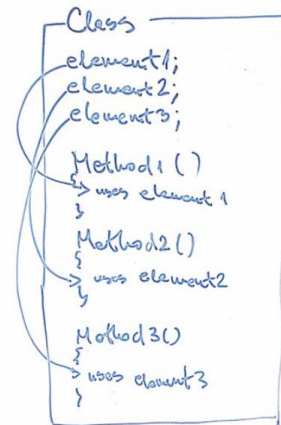 Class
element1;
element2;
element3;
Method1()
{
uses element1
}
Method2()
{
uses element2
}
Method3()
{
uses element3
}